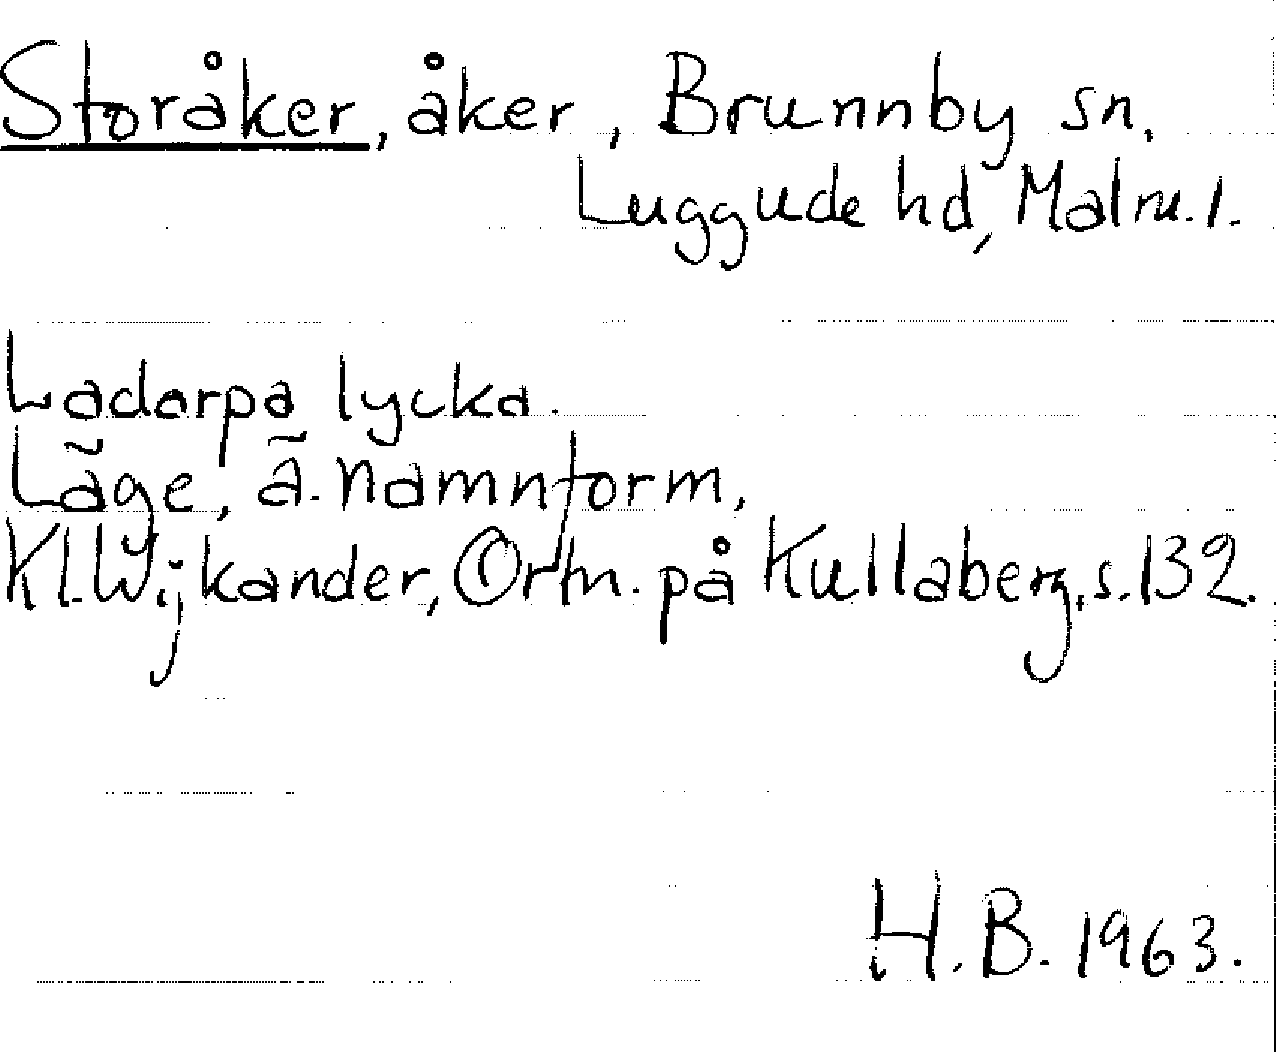 Storåker, åker, Brunnby sn.
Luggude hd, Malm. l.
Ladarpa lycka.
Läge, ä. namnform,
Kl. Wijkander, Ortn. på Kullaberg, s. 132.
H. B. 1963.